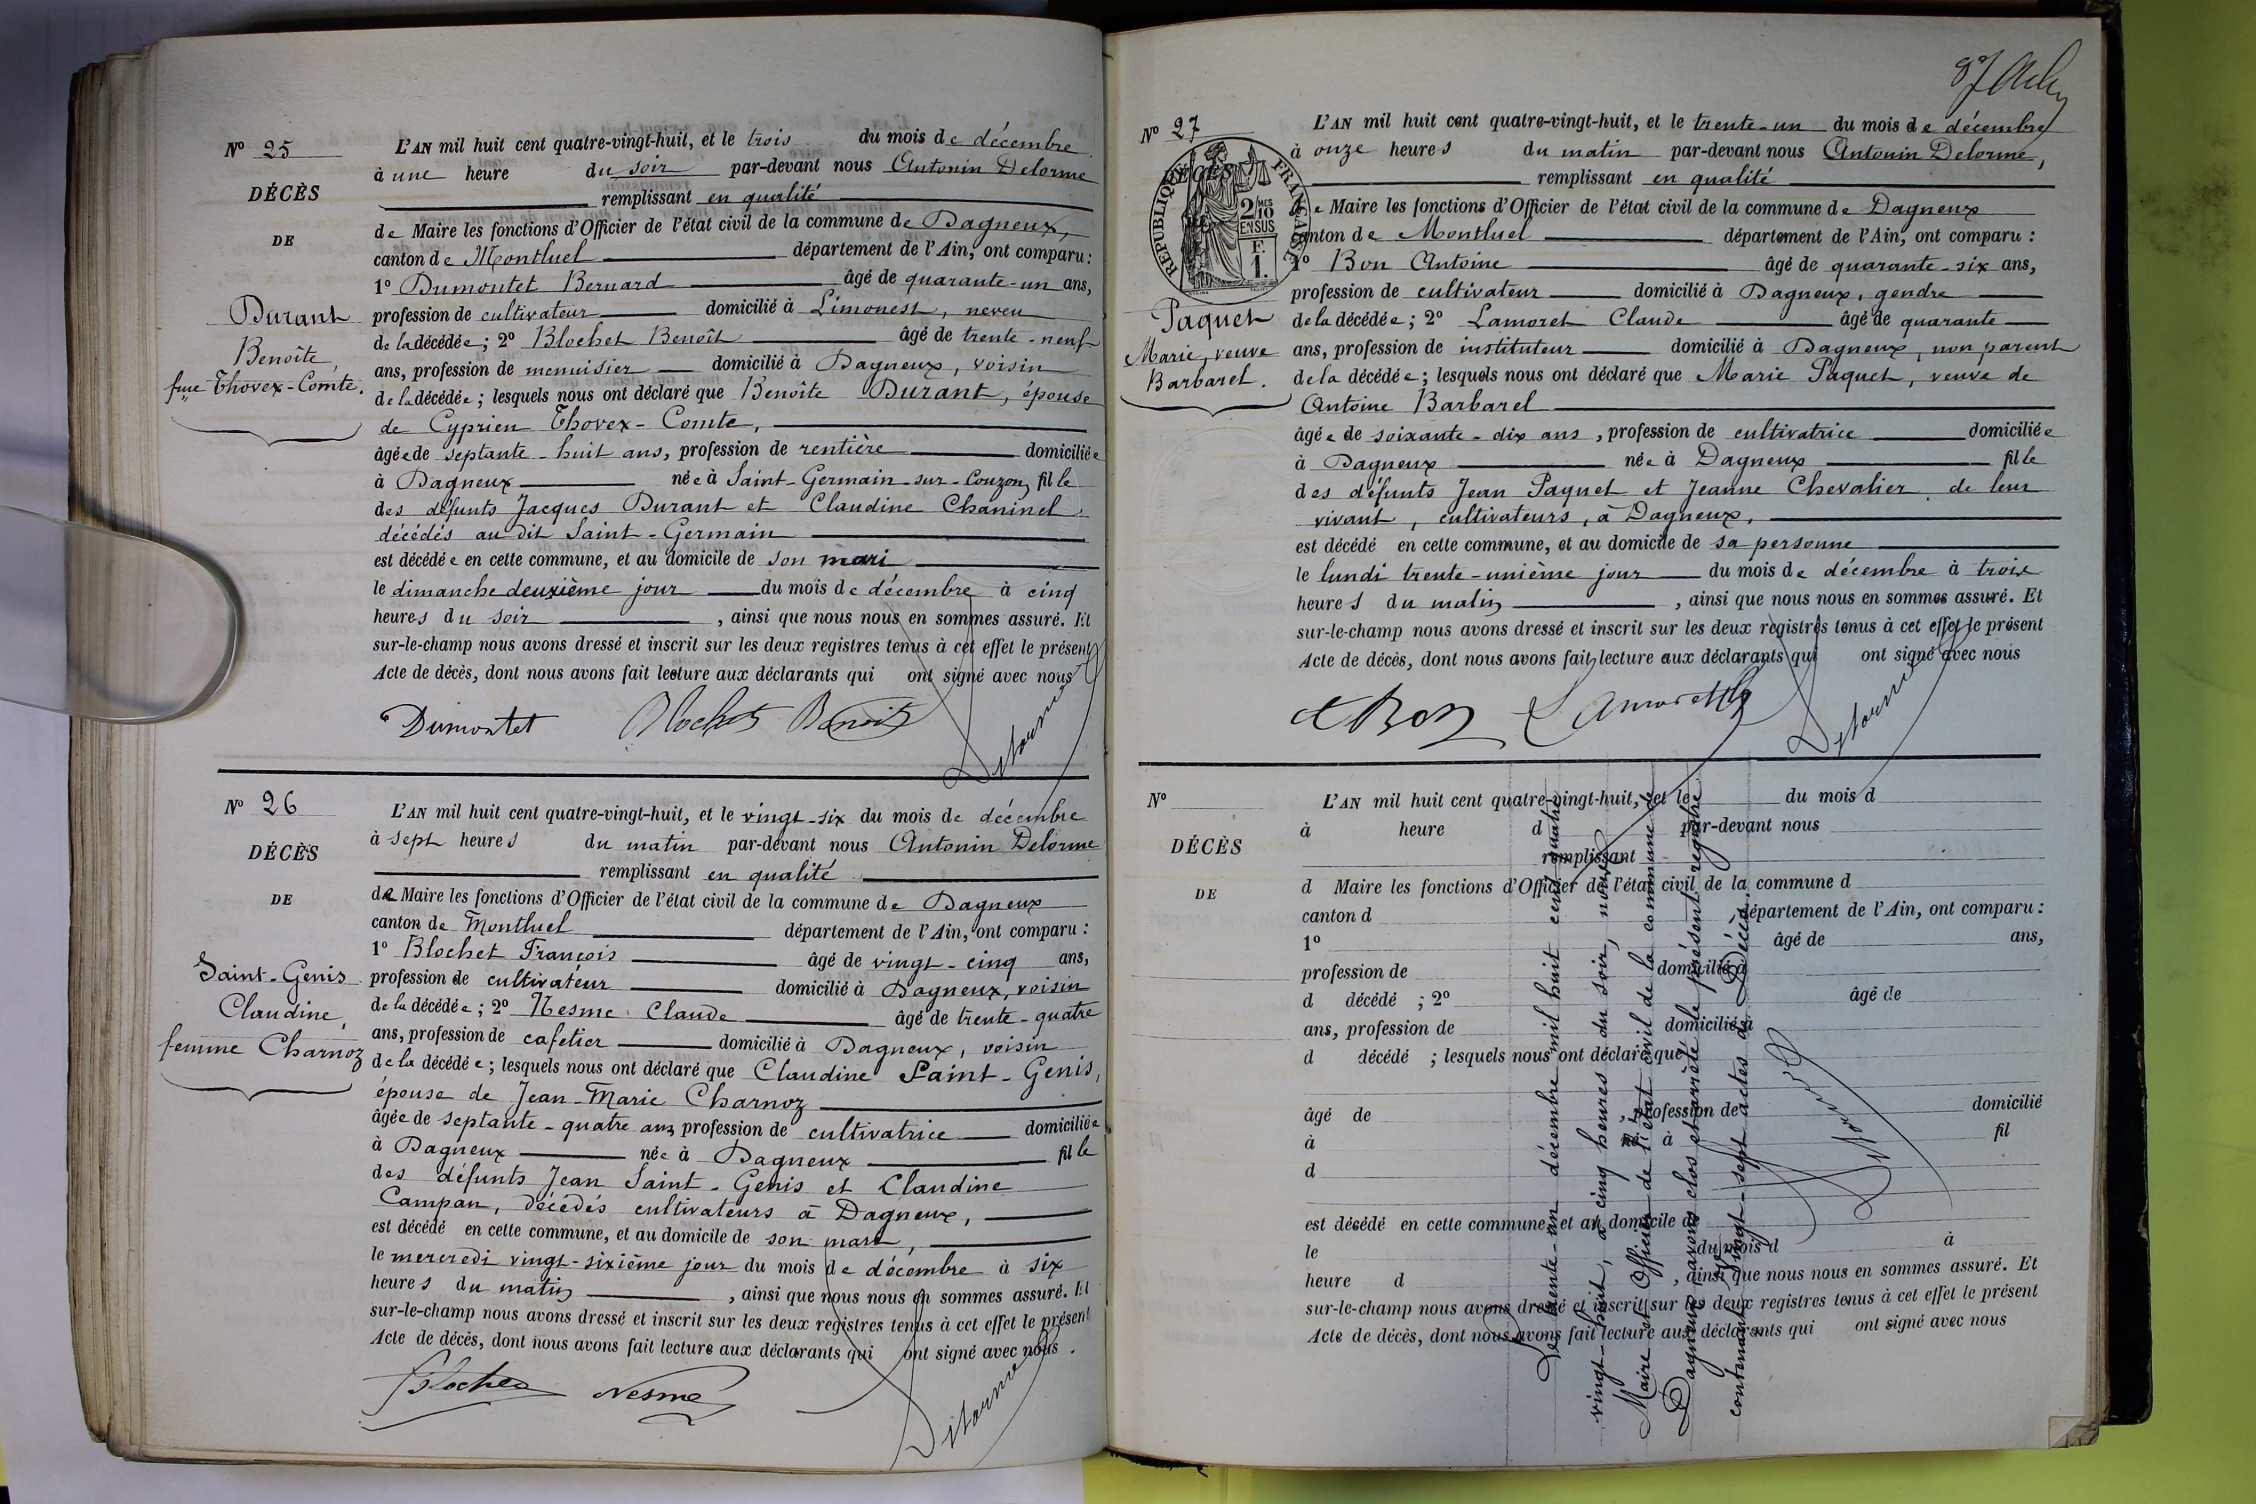 Nº 25
DÉCÈS
DE
Durant
Benoîte,
fme Thovex-Comte.
L'AN mil huit cent quatre-vingt-huit, et le trois du mois de décembre
à une heure du soir par-devant nous Antonin Delorme
remplissant en qualité
de Maire les fonctions d'Officier de l'état civil de la commune de Dagneux,
canton de Montluel département de l'Ain, ont comparu :
1º Dumontet Bernard âgé de quarante-un ans,
profession de cultivateur domicilié à Limonest, neveu
de la décédée ; 2º Blochet Benoît âgé de trente-neuf
ans, profession de menuisier domicilié à Dagneux, voisin
de la décédée ; lesquels nous ont déclaré que Benoîte Durant, épouse
de Cyprien Thovex-Comte,
âgée de septante-huit ans, profession de rentière domiciliée
à Dagneux née à Saint-Germain-sur-Couzon, fille
des défunts Jacques Durant et Claudine Chaninel,
décédés au dit Saint-Germain
est décédée en cette commune, et au domicile de son mari
le dimanche deuxième jour du mois de décembre à cinq
heures du soir , ainsi que nous nous en sommes assuré. Et
sur-le-champ nous avons dressé et inscrit sur les deux registres tenus à cet effet le présent
Acte de décès, dont nous avons fait lecture aux déclarants qui ont signé avec nous
Dumontet Blochet Benoit Delorme
Nº 26
DÉCÈS
DE
Saint-Genis
Claudine,
femme Charnoz
L'AN mil huit cent quatre-vingt-huit, et le vingt-six du mois de décembre
à sept heures du matin par-devant nous Antonin Delorme
remplissant en qualité
de Maire les fonctions d'Officier de l'état civil de la commune de Dagneux
canton de Montluel département de l'Ain, ont comparu :
1º Blochet François âgé de vingt-cinq ans,
profession de cultivateur domicilié à Dagneux, voisin
de la décédée ; 2º Nesme Claude âgé de trente-quatre
ans, profession de cafetier domicilié à Dagneux, voisin
de la décédée ; lesquels nous ont déclaré que Claudine Saint-Genis,
épouse de Jean-Marie Charnoz
âgée de septante-quatre ans profession de cultivatrice domiciliée
à Dagneux née à Dagneux fille
des défunts Jean Saint-Genis et Claudine
Campan, décédés cultivateurs à Dagneux,
est décédé en cette commune, et au domicile de son mari,
le mercredi vingt-sixième jour du mois de décembre à six
heures du matin , ainsi que nous nous en sommes assuré. Et
sur-le-champ nous avons dressé et inscrit sur les deux registres tenus à cet effet le présent
Acte de décès, dont nous avons fait lecture aux déclarants qui ont signé avec nous.
Blochet Nesme Delorme
Nº 27
DÉCÈS
RÉPUBLIQUE FRANÇAISE
2/10 MES EN SUS
F. 1.
Paquet
Marie, veuve
Barbarel.
L'AN mil huit cent quatre-vingt-huit, et le trente-un du mois de décembre
à onze heures du matin par-devant nous Antonin Delorme,
remplissant en qualité
de Maire les fonctions d'Officier de l'état civil de la commune de Dagneux
canton de Montluel département de l'Ain, ont comparu :
1º Bon Antoine âgé de quarante-six ans,
profession de cultivateur domicilié à Dagneux, gendre
de la décédée ; 2º Lamoret Claude âgé de quarante
ans, profession de instituteur domicilié à Dagneux, non parent
de la décédée ; lesquels nous ont déclaré que Marie Paquet, veuve de
Antoine Barbarel
âgée de soixante-dix ans, profession de cultivatrice domiciliée
à Dagneux née à Dagneux fille
des défunts Jean Paquet et Jeanne Chevalier, de leur
vivant, cultivateurs, à Dagneux,
est décédé en cette commune, et au domicile de sa personne
le lundi trente-unième jour du mois de décembre à trois
heures du matin , ainsi que nous nous en sommes assuré. Et
sur-le-champ nous avons dressé et inscrit sur les deux registres tenus à cet effet le présent
Acte de décès, dont nous avons fait lecture aux déclarants qui ont signé avec nous
A Bon Lamoret Delorme
Nº
DÉCÈS
DE
L'AN mil huit cent quatre-vingt-huit, et le du mois d
à heure d par-devant nous
remplissant
d Maire les fonctions d'Officier de l'état civil de la commune d
canton d département de l'Ain, ont comparu :
1º âgé de ans,
profession de domicilié à
d décédé ; 2º âgé de
ans, profession de domicilié à
d décédé ; lesquels nous ont déclaré que
âgé de profession de domicilié
à né à fil
d
est décédé en cette commune, et au domicile de
le du mois d à
heure d , ainsi que nous nous en sommes assuré. Et
sur-le-champ nous avons dressé et inscrit sur les deux registres tenus à cet effet le présent
Acte de décès, dont nous avons fait lecture aux déclarants qui ont signé avec nous
Le trente-un décembre mil huit cent quatre
vingt-huit, à cinq heures du soir, nous
Maire et Officier de l'état civil de la commune de
Dagneux avons clos et arrêté le présent registre
contenant vingt-sept actes de Décès.
Delorme